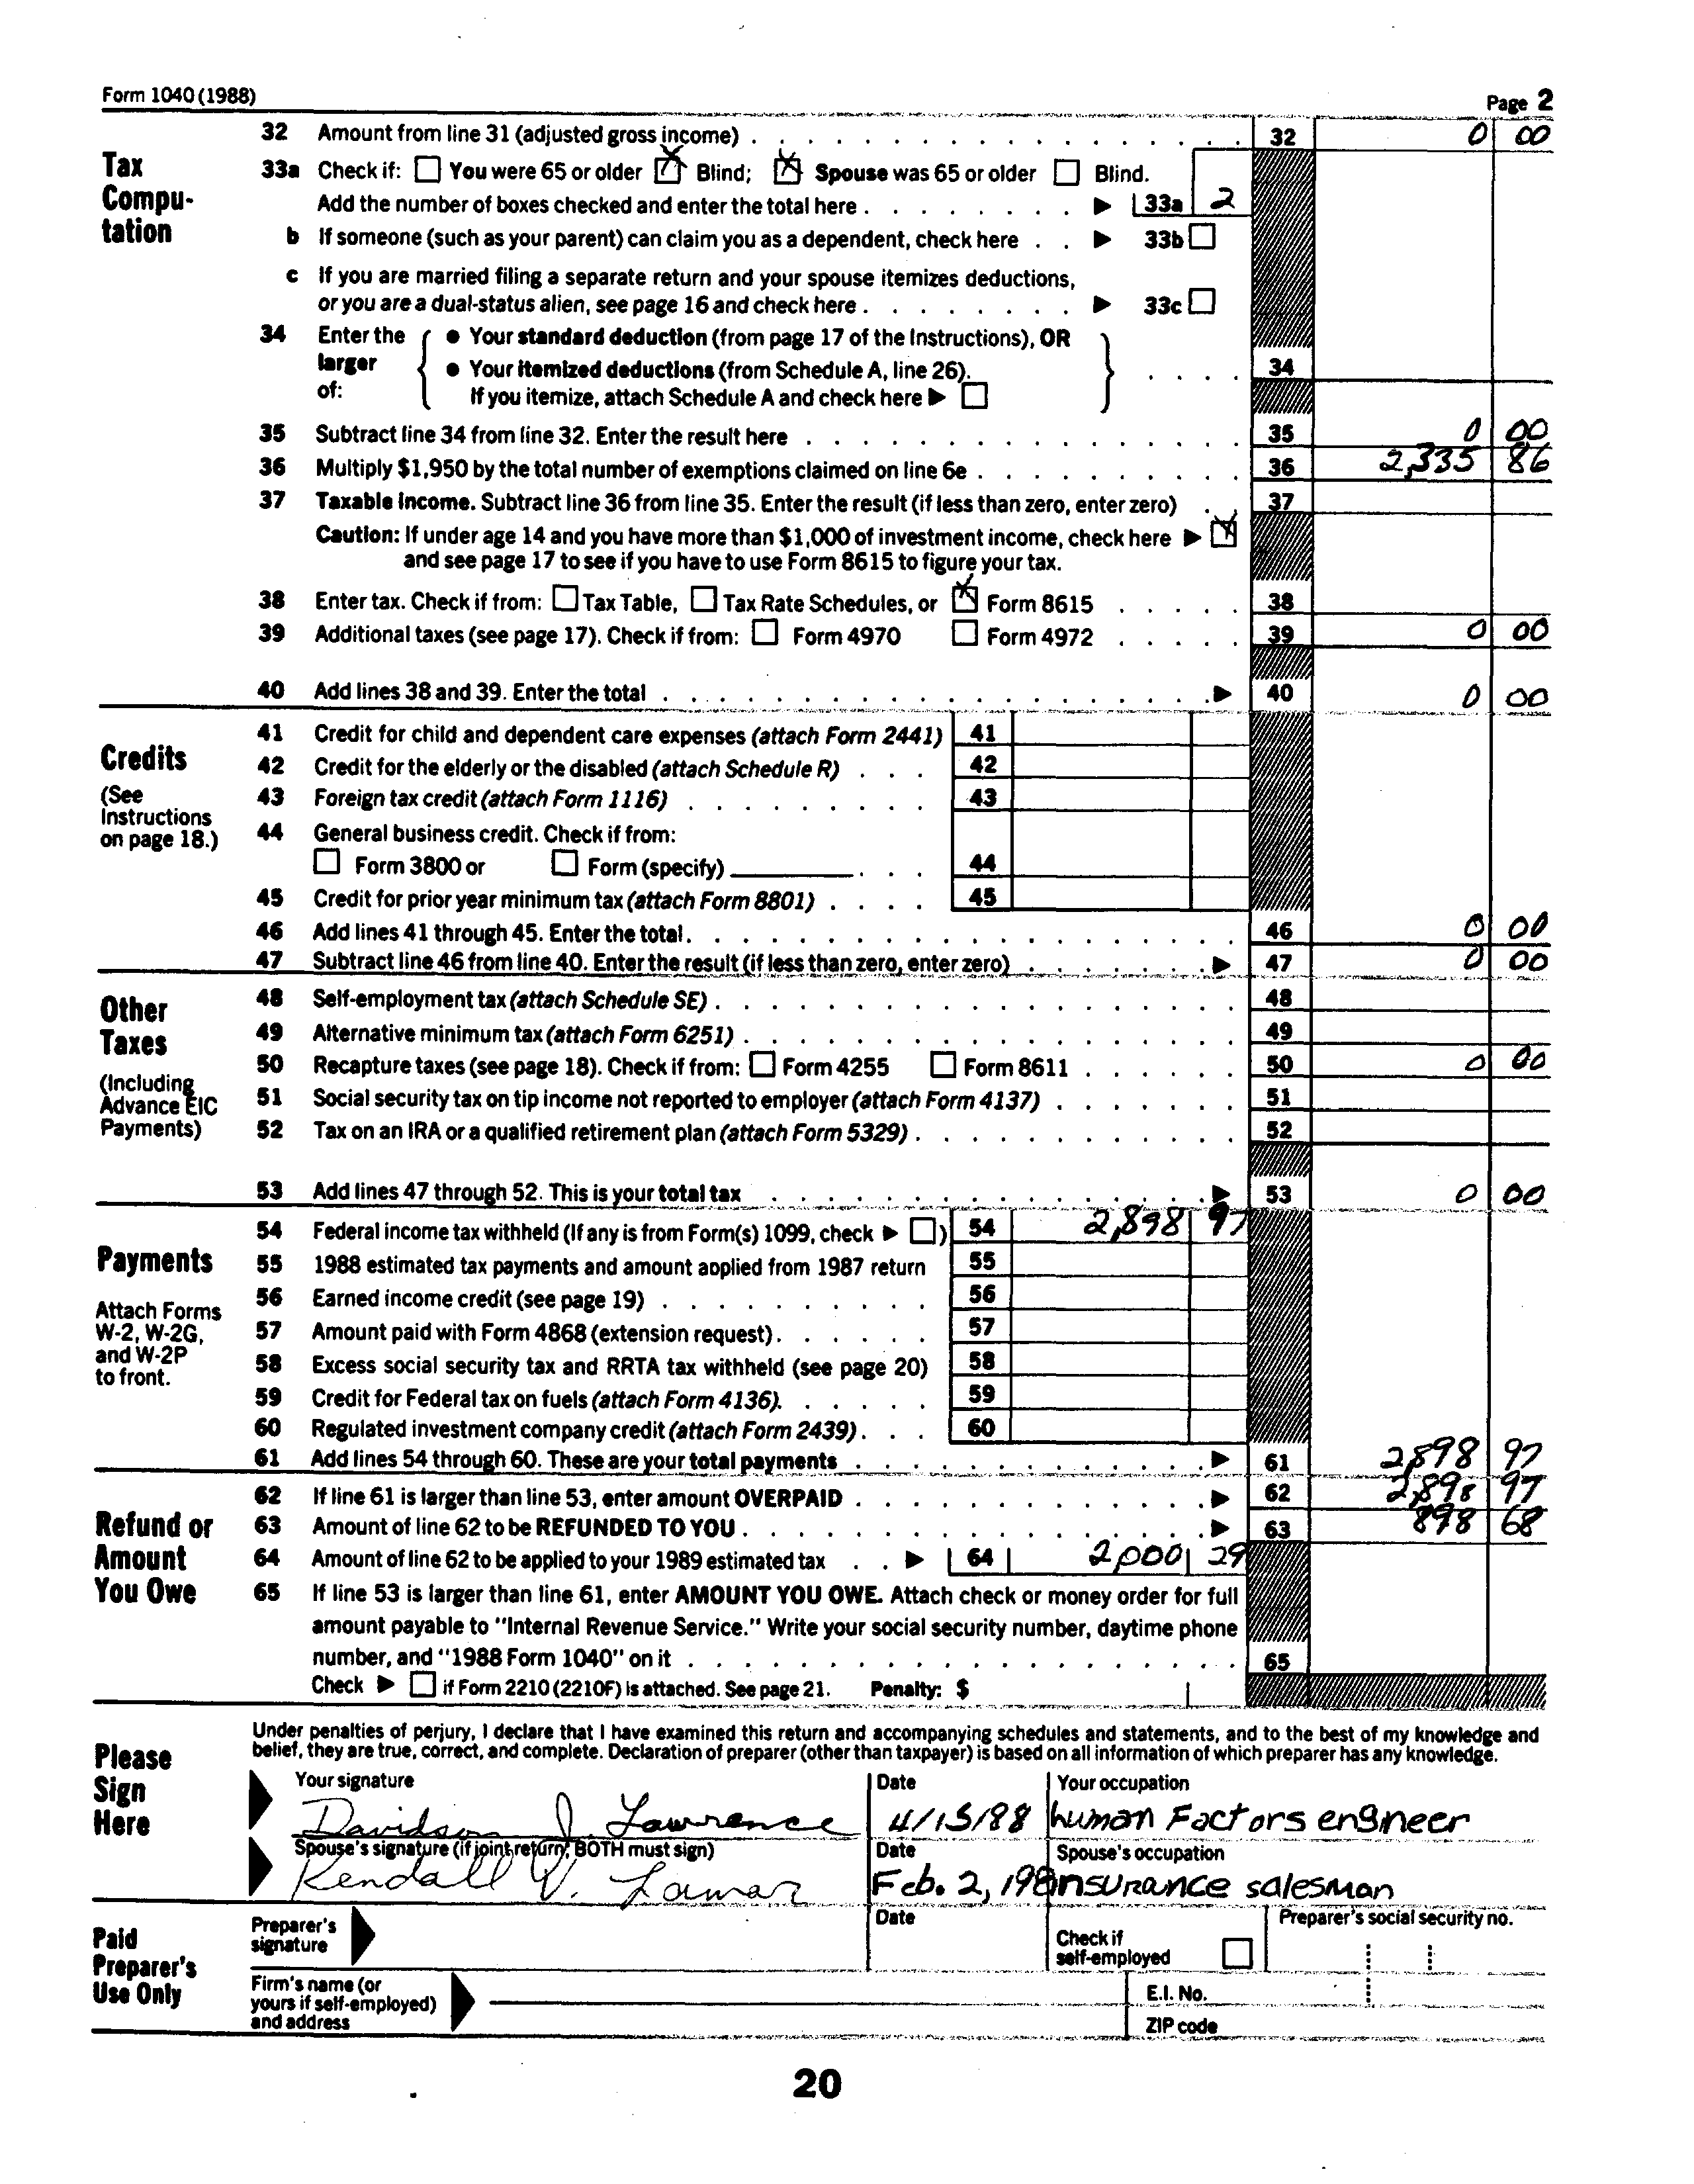 Form 1040 (1988) Page 2
Tax Compu-tation
32 Amount from line 31 (adjusted gross income) . . . . 32 0 00
33a Check if: ☐ You were 65 or older ☒ Blind; ☒ Spouse was 65 or older ☐ Blind.
Add the number of boxes checked and enter the total here . . . . ▶ 33a 2
b If someone (such as your parent) can claim you as a dependent, check here . . ▶ 33b ☐
c If you are married filing a separate return and your spouse itemizes deductions,
or you are a dual-status alien, see page 16 and check here . . . . ▶ 33c ☐
34 Enter the larger of: { ● Your standard deduction (from page 17 of the Instructions), OR
● Your itemized deductions (from Schedule A, line 26). } . . . . 34
If you itemize, attach Schedule A and check here ▶ ☐
35 Subtract line 34 from line 32. Enter the result here . . . . 35 0 00
36 Multiply $1,950 by the total number of exemptions claimed on line 6e . . . . 36 2,335 86
37 Taxable income. Subtract line 36 from line 35. Enter the result (if less than zero, enter zero) . . 37
Caution: If under age 14 and you have more than $1,000 of investment income, check here ▶ ☒
and see page 17 to see if you have to use Form 8615 to figure your tax.
38 Enter tax. Check if from: ☐ Tax Table, ☐ Tax Rate Schedules, or ☒ Form 8615 . . . . 38
39 Additional taxes (see page 17). Check if from: ☐ Form 4970 ☐ Form 4972 . . . . 39 0 00
40 Add lines 38 and 39. Enter the total . . . . ▶ 40 0 00
Credits
(See Instructions on page 18.)
41 Credit for child and dependent care expenses (attach Form 2441) 41
42 Credit for the elderly or the disabled (attach Schedule R) . . . 42
43 Foreign tax credit (attach Form 1116) . . . . 43
44 General business credit. Check if from:
☐ Form 3800 or ☐ Form (specify) ______ . . . 44
45 Credit for prior year minimum tax (attach Form 8801) . . . . 45
46 Add lines 41 through 45. Enter the total . . . . 46 0 00
47 Subtract line 46 from line 40. Enter the result (if less than zero, enter zero) . . . . ▶ 47 0 00
Other Taxes
(Including Advance EIC Payments)
48 Self-employment tax (attach Schedule SE) . . . . 48
49 Alternative minimum tax (attach Form 6251) . . . . 49
50 Recapture taxes (see page 18). Check if from: ☐ Form 4255 ☐ Form 8611 . . . . 50 0 00
51 Social security tax on tip income not reported to employer (attach Form 4137) . . . . 51
52 Tax on an IRA or a qualified retirement plan (attach Form 5329) . . . . 52
53 Add lines 47 through 52. This is your total tax . . . . ▶ 53 0 00
Payments
Attach Forms W-2, W-2G, and W-2P to front.
54 Federal income tax withheld (If any is from Form(s) 1099, check ▶ ☐) 54 2,898 97
55 1988 estimated tax payments and amount applied from 1987 return 55
56 Earned income credit (see page 19) . . . . 56
57 Amount paid with Form 4868 (extension request) . . . . 57
58 Excess social security tax and RRTA tax withheld (see page 20) 58
59 Credit for Federal tax on fuels (attach Form 4136) . . . . 59
60 Regulated investment company credit (attach Form 2439) . . . 60
61 Add lines 54 through 60. These are your total payments . . . . ▶ 61 2,898 97
Refund or Amount You Owe
62 If line 61 is larger than line 53, enter amount OVERPAID . . . . ▶ 62 2,898 97
63 Amount of line 62 to be REFUNDED TO YOU . . . . ▶ 63 898 68
64 Amount of line 62 to be applied to your 1989 estimated tax . . ▶ 64 2,000 29
65 If line 53 is larger than line 61, enter AMOUNT YOU OWE. Attach check or money order for full
amount payable to "Internal Revenue Service." Write your social security number, daytime phone
number, and "1988 Form 1040" on it . . . . 65
Check ▶ ☐ if Form 2210 (2210F) is attached. See page 21. Penalty: $
Please Sign Here
Under penalties of perjury, I declare that I have examined this return and accompanying schedules and statements, and to the best of my knowledge and
belief, they are true, correct, and complete. Declaration of preparer (other than taxpayer) is based on all information of which preparer has any knowledge.
Your signature Date Your occupation
Davidson J. Lawrence 4/15/88 human Factors engineer
Spouse's signature (if joint return, BOTH must sign) Date Spouse's occupation
Kendall V. Lamar Feb. 2, 198 insurance salesman
Paid Preparer's Use Only
Preparer's signature Date Check if self-employed ☐ Preparer's social security no.
Firm's name (or yours if self-employed) and address E.I. No.
ZIP code
20